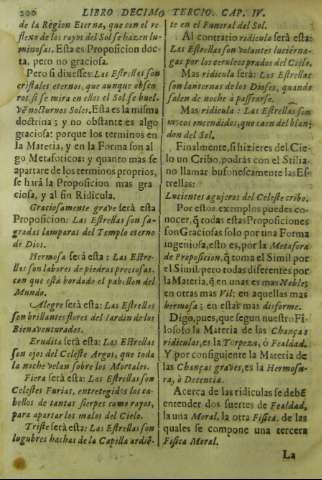 200 LIBRO DECIMO TERCIO. CAP. IV.
de la Region Eterna, que con el re
flexo de los rayos del Sol se hazen lu-
minosas. Esta es Proposicion doc-
ta, pero no graciosa.
Pero si dixesses: Las Estrellas son
cristales eternos, que aunque obscu-
ros, si se mira en ellos el Sol se buel-
vē nocturnos Soles, Esta es la misma
doctrina; y no obstante es algo
graciosa: porque los terminos en
la Materia, y en la Forma son al-
go Metaforicos: y quanto mas se
apartare de los terminos proprios,
se hará la Proposicion mas gra
ciosa, y al fin Ridicula.
Graciosamente grave será esta
Proposicion: Las Estrellas son sa-
gradas lamparas del Templo eterno
de Dios.
Hermosa será esta: Las Estre-
llas son labores de piedras preciosas,
con que está bordado el pabellon del
Mundo.
Alegre será esta: Las Estrellas
son brillantes flores del Iardin de los
Bienaventurados.
Erudita será esta: Las Estrellas
son ojos del Celeste Argos, que toda
la noche velan sobre los Mortales.
Fiera será esta: Las Estrellas son
Celestes Furias, entretegidos los ca-
bellos de tantas sierpes como rayos,
para apartar los malos del Cielo.
Triste será esta: Las Estrellas son
lugubres hachas de la Capilla ardiē-
te en el Funeral del Sol.
Al contrario ridicula será esta:
Las Estrellas son volantes luciérna-
gas por los ceruleos prados del Cielo.
Mas ridicula será: Las Estrellas
son lanternas de los Dioses, quando
salen de noche à passearse.
Mas ridicula: Las Estrellas son
mocos encendidos, que caen del
den del Sol.
Finalmente, si hizieres del Cie-
lo un Cribo, podrás con el Stilia-
no llamar bufonescamente las Es-
trellas:
Lucientes agujeros del Celeste cribo.
Por estos exemplos puedes co-
nocer, q̃ todas estas Proposiciones
son Graciosas solo por una Forma
ingeniosa, esto es, por la Metafora
de Proposicion, q̃ toma el Simil por
el Simil, pero todas diferentes por
la Materia, q̃ en unas es mas Noble;
en otras mas Vil: en aquellas mas
hermosa; en estas mas disforme.
Digo, pues, que segun nuestro Fi-
losofo la Materia de las Chanças
ridiculas, es la Torpeza, ò Fealdad.
Y por configuiente la Materia de
las Chanças graves, es la Hermosu-
ra, ò Decencia.
Acerca de las ridiculas se debē
entender dos suertes de Fealdad,
la una Moral, la otra Fisica, de las
quales se compone una tercera
Fisica Moral.
La